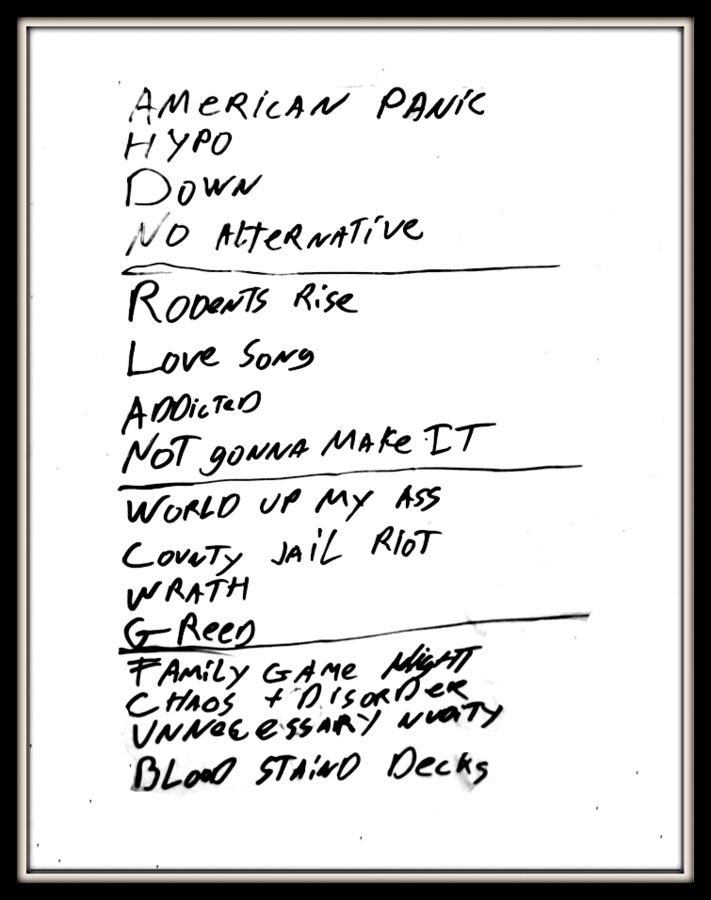 AMERICAN PANIC
HYPO
DOWN
NO ALTERNATIVE
RODENTS RISE
LOVE SONG
ADDICTED
NOT GONNA MAKE IT
WORLD UP MY ASS
COUNTY JAIL RIOT
WRATH
GREED
FAMILY GAME NIGHT
CHAOS + DISORDER
UNNECESSARY NUDITY
BLOOD STAIND DECKS